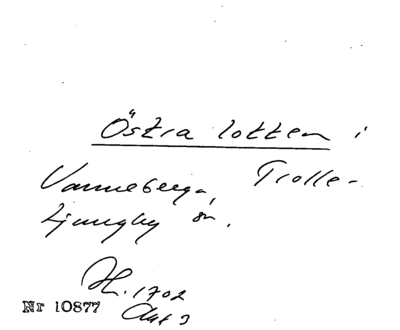 Östra lotten i
Vanneberga, Trolle-
Ljungby sn.
H. 1702
Akt 3
Nr 10877